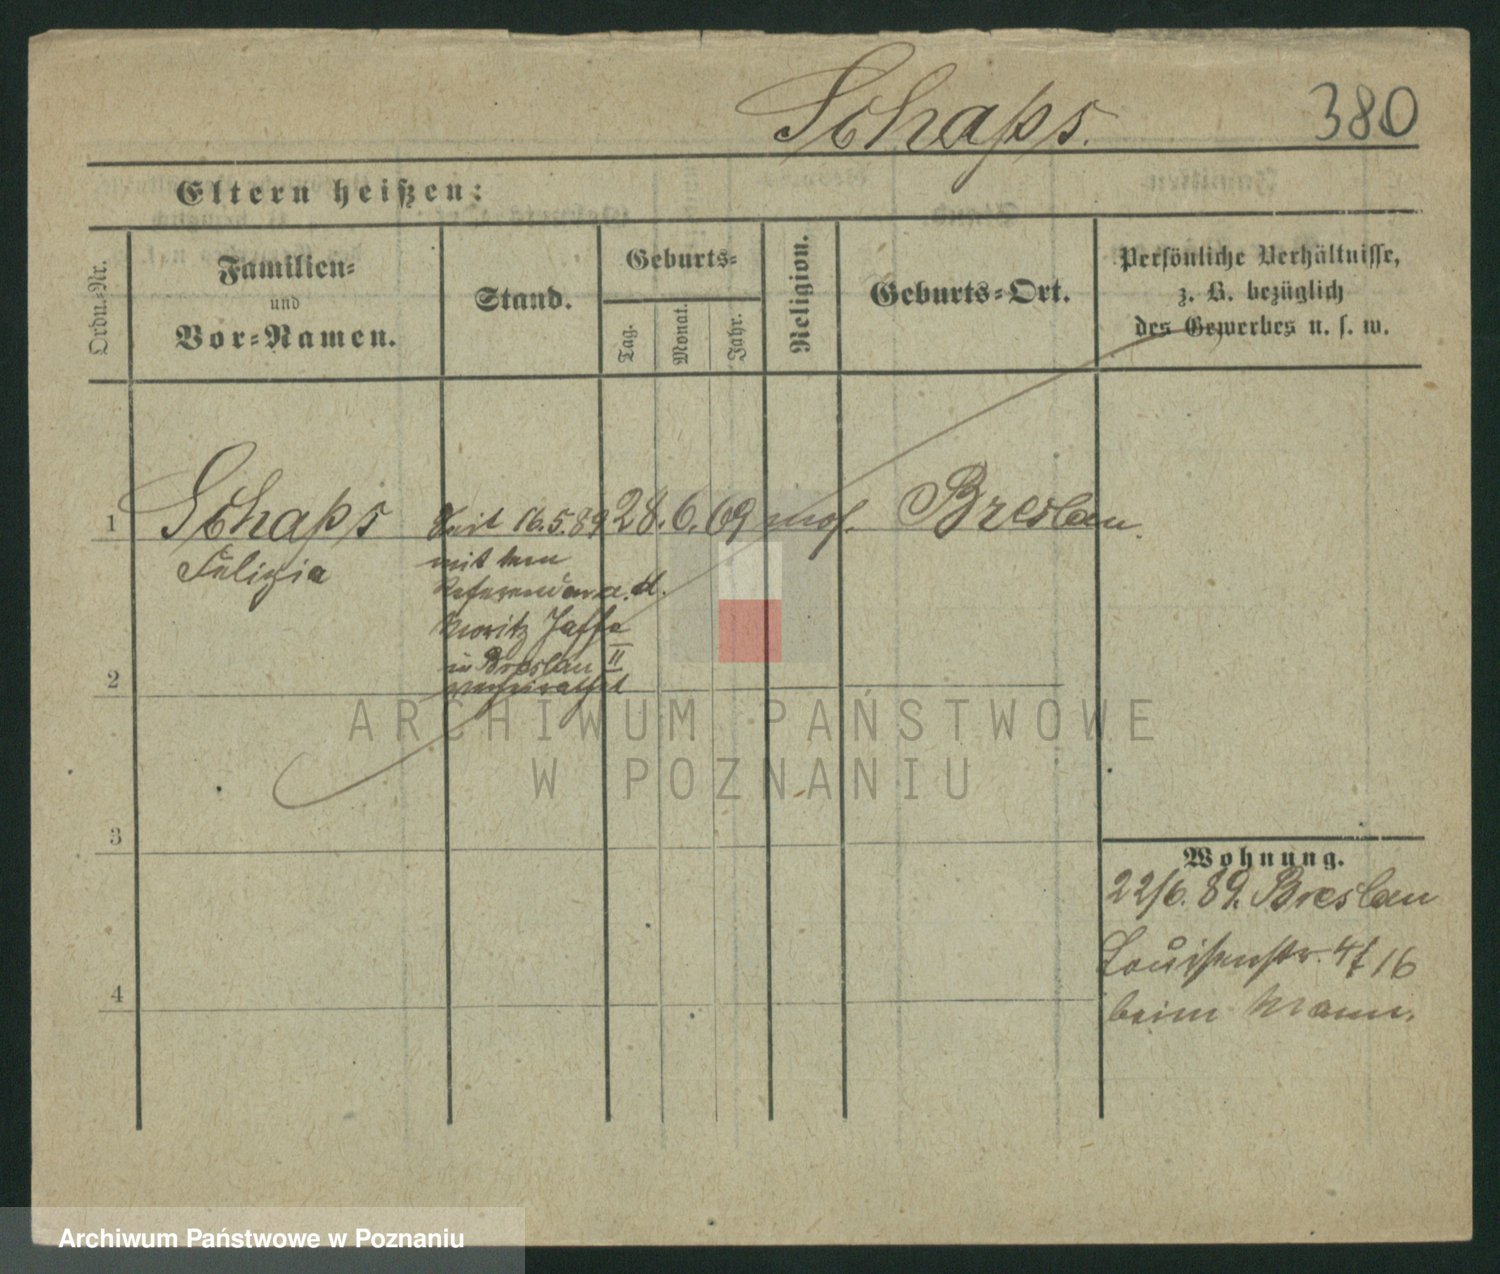 Schaps.
380
Eltern heißen:
Ordn.-Nr.
Familien-
und
Vor-Namen.
Stand.
Geburts-
Tag.
Monat.
Jahr.
Religion.
Geburts-Ort.
Persönliche Verhältnisse,
z. B. bezüglich
des Gewerbes u. s. w.
1
Schaps
Felizia
Seit 16.5.89
mit dem
Referendar a. d.
Moritz Jaffe
in Breslau II
verheirathet
28. 6. 69
mos.
Breslau.
2
3
4
Wohnung.
22/6. 89. Breslau
Louisenstr. 16
beim Mann.
ARCHIWUM PAŃSTWOWE
W POZNANIU
Archiwum Państwowe w Poznaniu